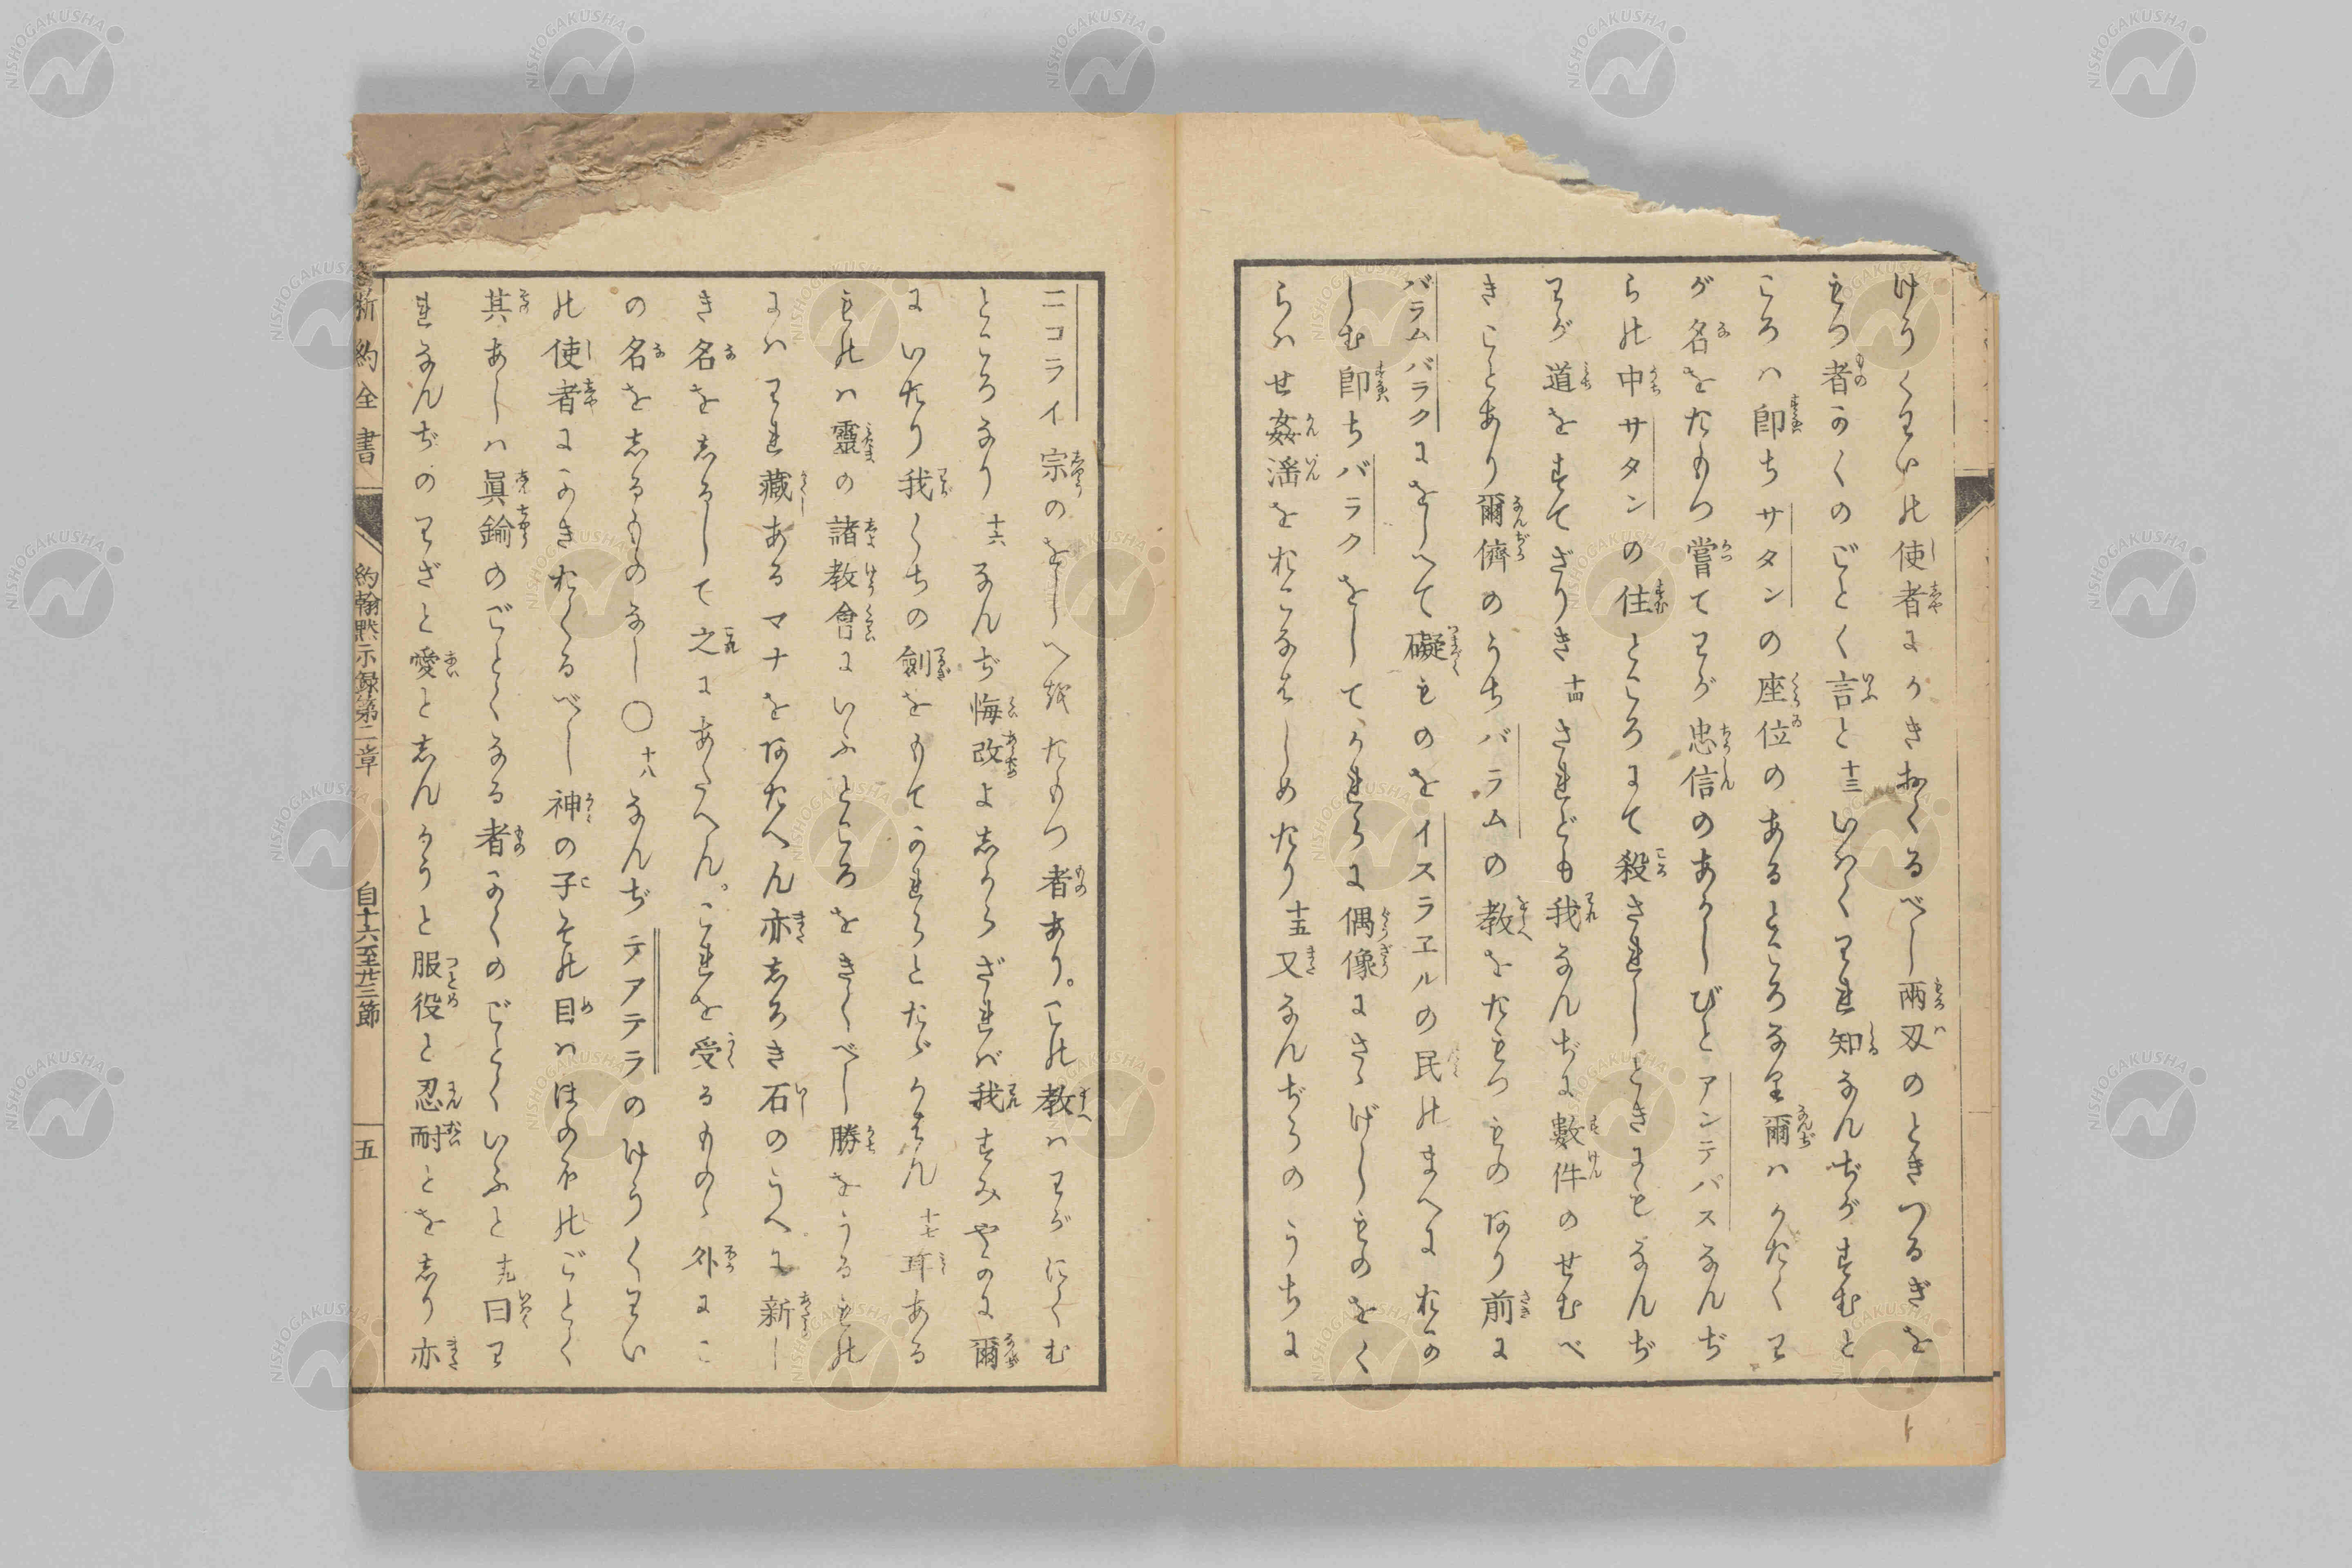 けうくわいの使者にかきおくるべし兩刃のときつるぎを
もつ者かくのごとく言と十三いはくわれ知なんぢがすむと
ころハ即ちサタンの座位のあるところなり爾ハかたくわ
が名をたもつ嘗てわが忠信のあかしびとアンテパスなんぢ
らの中サタンの住ところにて殺されしときにもなんぢ
わが道をすてざりき十四されども我なんぢに數件のせむべ
きことあり爾儕のうちバラムの教をたもつものあり前に
バラムバラクにをしへて礙ものをイスラヱルの民のまへにおか
しむ即ちバラクをしてかれらに偶像にさゝげしものをく
らハせ姦淫をおこなはしめたり十五又なんぢらのうちに
ニコライ宗のをしへをたもつ者あり。この教ハわがにくむ
ところなり十六なんぢ悔改よしからざれバ我すみやかに爾
にいたり我くちの劍をもてかれらとたゝかはん十七耳ある
ものハ靈の諸教會にいふところをきくべし勝をうるもの
にハわれ藏あるマナをあたへん亦しろき石のうへに新し
き名をしるして之にあたへん。これを受るものゝ外にこ
の名をしるものなし〇十八なんぢテアテラのけうくわい
の使者にかきおくるべし神の子その目ハほのほのごとく
其あしハ眞鍮のごとくなる者かくのごとくいふと十九曰わ
れなんぢのわざと愛としんかうと服役と忍耐とをしり亦
新約全書
約翰黙示録第二章
自十六至廿三節
五
NISHOGAKUSHA